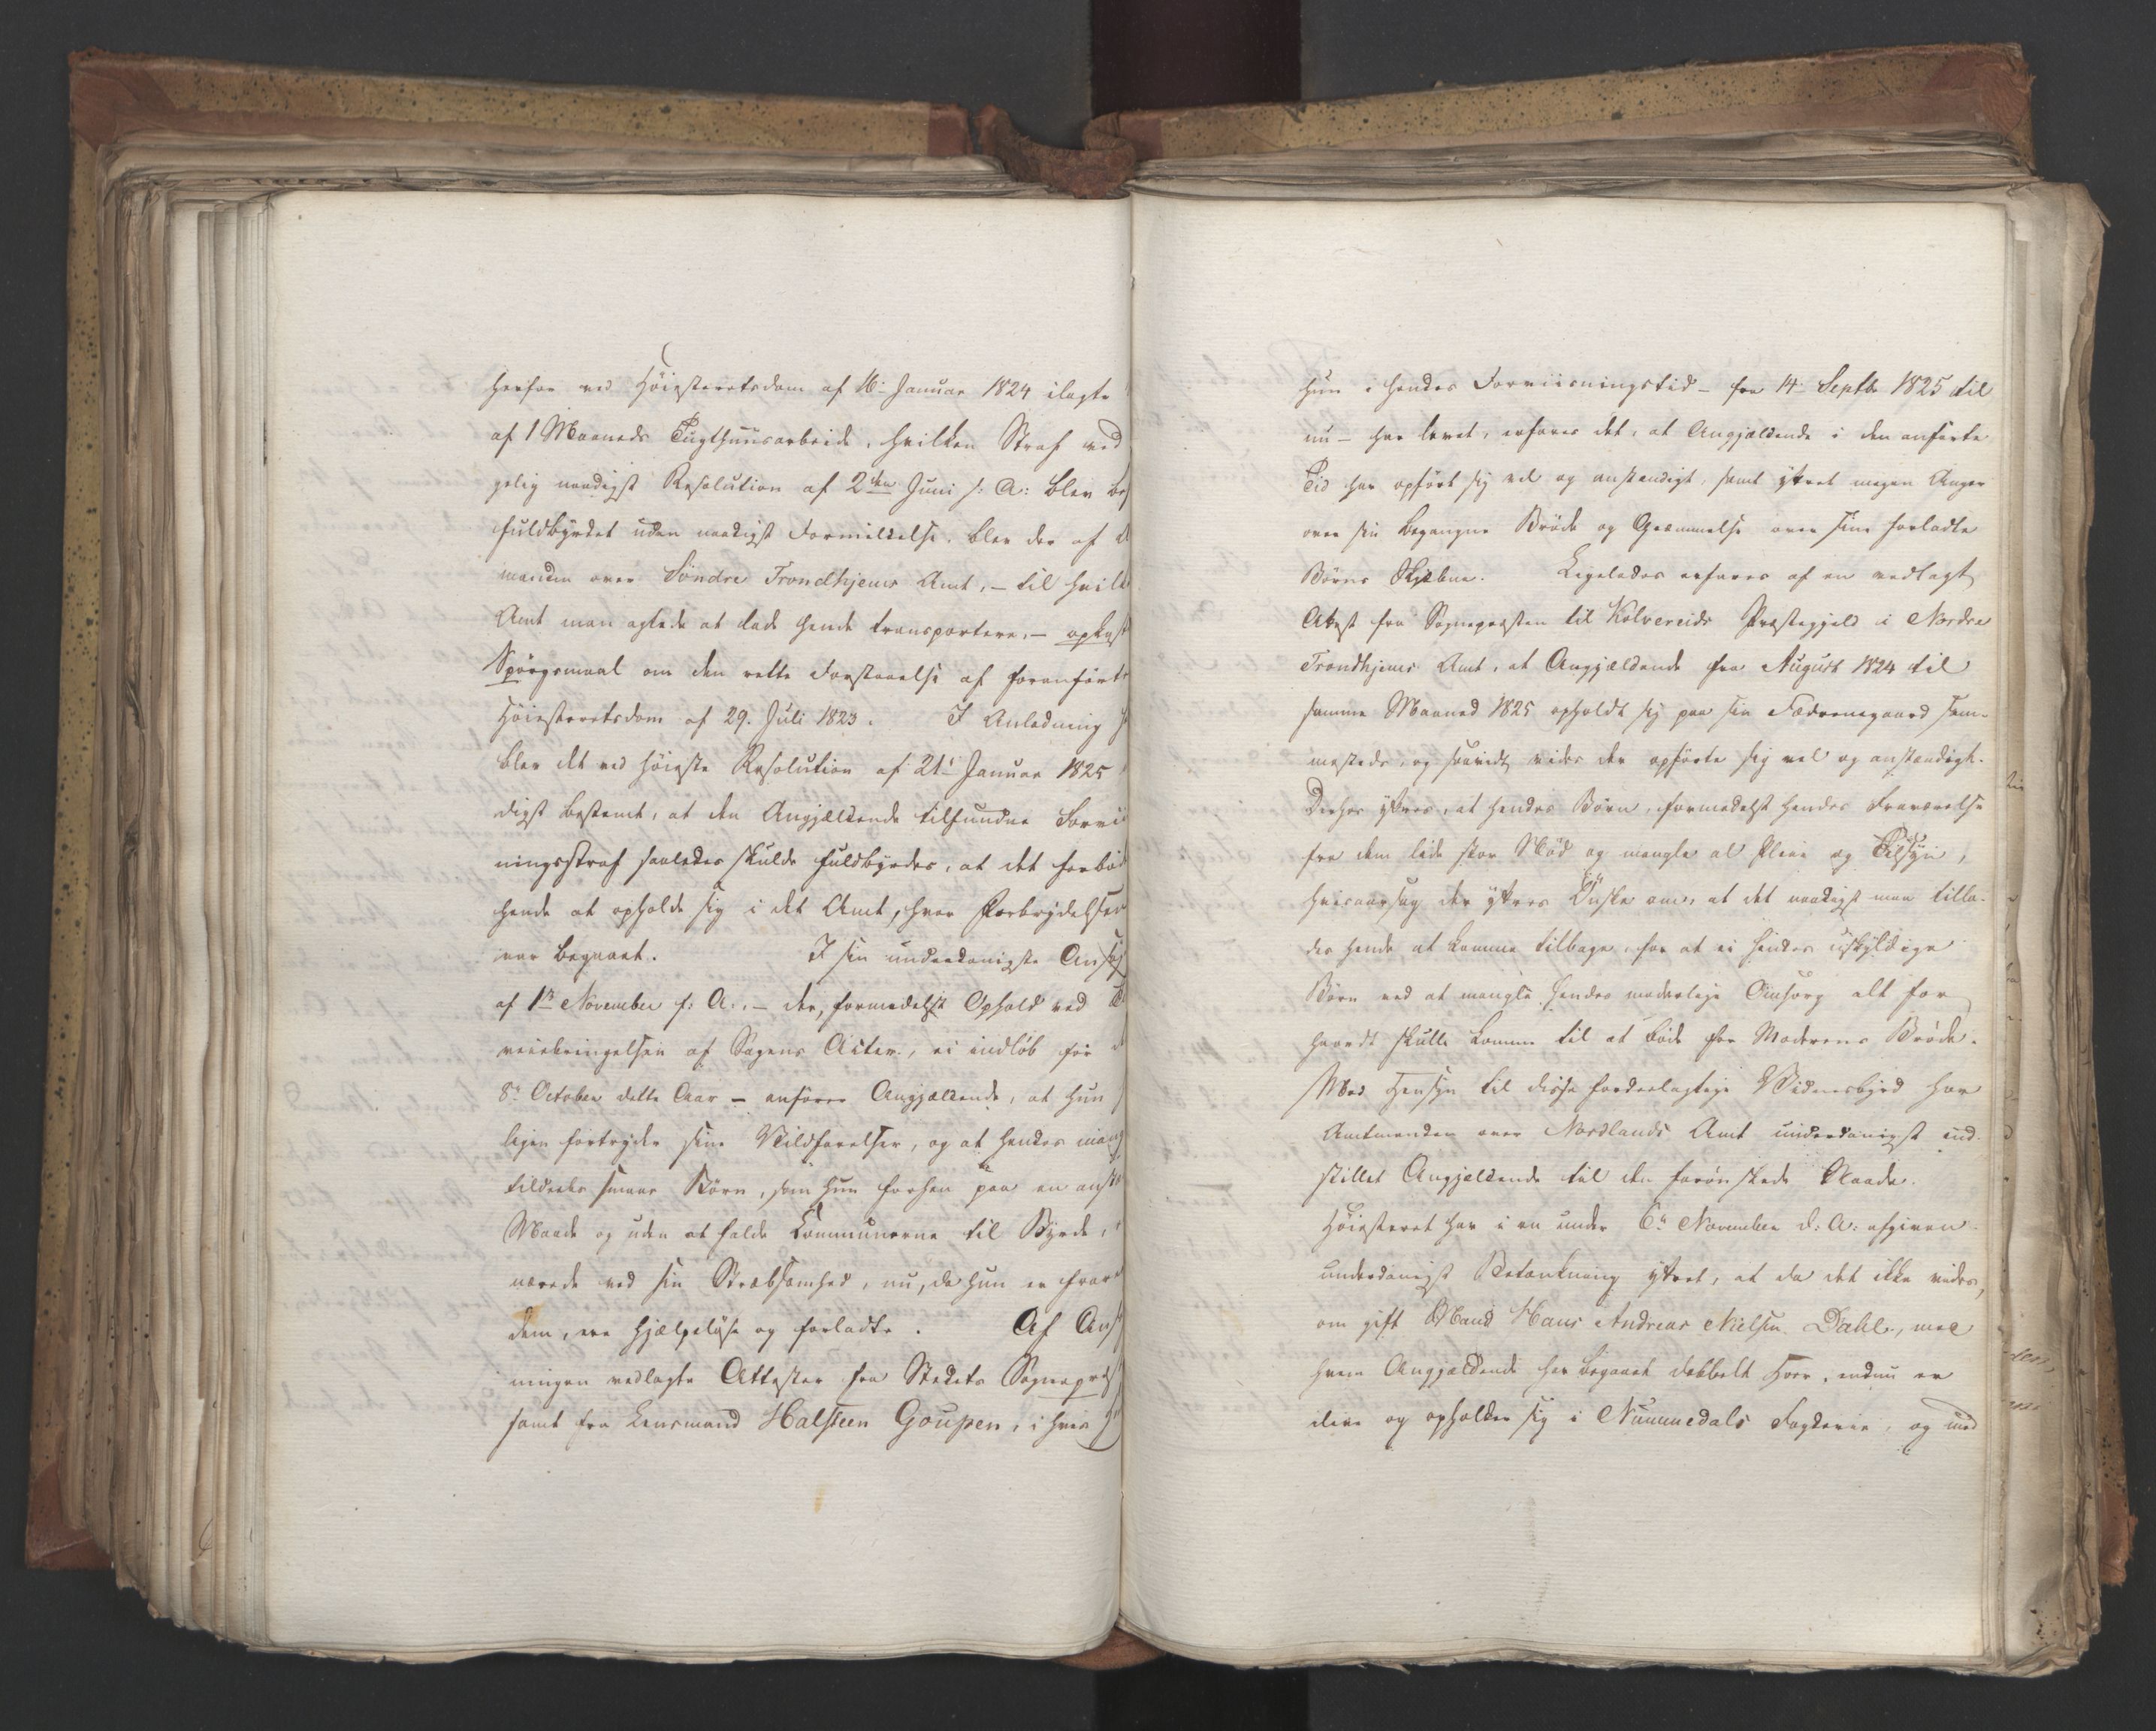 herfor ved Höiesteretsdom af 16. Januar 1824 ilagte
af 1 Maaneds Tugthuusarbeide, hvilken Straf ved
gelig naadigst Resolution af 2den Juni s: A: blev bes
fuldbyrdet uden naadigst Formildelse, blev der af A
manden over Söndre Trondhjems Amt, – til hvilk
Amt man agtede at lade hende transportere, – opkast
Spörgsmaal om den rette Forstaaelse af foranförte
Höiesteretsdom af 29. Juli 1823. I Anledning h
blev det ved höieste Resolution af 21. Januar 1825
digst bestemt, at den Angjældende tilfundne Forvi
ningsstraf saaledes skulde fuldbyrdes, at det forböd
hende at opholde sig i det Amt, hvor Forbrydelsen
var begaaet. I sin underdanigste Ansög
af 1ste November f: A:, – der, formedelst Ophold ved
veiebringelsen af Sagens Acter, ei indlöb för d
8de October dette Aar – anförer Angjældende, at hun
ligen fortryder sine Vildfarelser, og at hendes mang
tildeels smaae Börn, som hun forhen paa en anst
Maade og uden at falde Communerne til Byrde,
nærede ved sin Stræbsomhed, nu, da hun er fra
dem, ere hjælpelöse og forladte. Af Ans
ningen vedlagte Attester fra Stedets Sognepræs
samt fra Lensmand Halsteen Goupen, i hvis
hun i hendes Forviisningstid – fra 14. Septbr 1825 til
nu – har levet, erfares det, at Angjældende i den anförte
Tid har opfört sig vel og anstændigt, samt yttret megen Anger
over sin begangne Bröde og Græmmelse over sine forladte
Börns Skjebne. Ligeledes erfares af en vedlagt
Attest fra Sognepræsten til Kolvereids Præstegjeld i Nordre
Trondhjems Amt, at Angjældende fra August 1824 til
samme Maaned 1825 opholdt sig paa sin Fædrenegaard sam-
mesteds, og saavidt vides der opförte sig vel og anstændigt.
Derhos yttres, at hendes Börn, formedelst hendes Fraværelse
fra dem lide stor Nöd og mangle al Pleie og Tilsyn,
hvisaarsag der yttres Önske om, at det naadigst maa tilla-
des hende at komme tilbage, for at ei hendes uskyldige
Börn ved at mangle hendes moderlige Omsorg alt for
haardt skulle komme til at bøde for Moderens Bröde.
Med Hensyn til disse fordeelagtige Vidnesbyrd har
Amtmanden over Nordlands Amt underdanigst ind-
stillet Angjældende til den forönskede Naade.
Höiesteret har i en under 6te November d: A: afgiven
underdanigst Betænkning yttret, at da det ikke vides,
om gift Mand Hans Andreas Nielsen Dahl, med
hvem Angjældende har begaaet dobbelt Hoer, endnu er
ilive og opholder sig i Nummedals Fogderie, og med